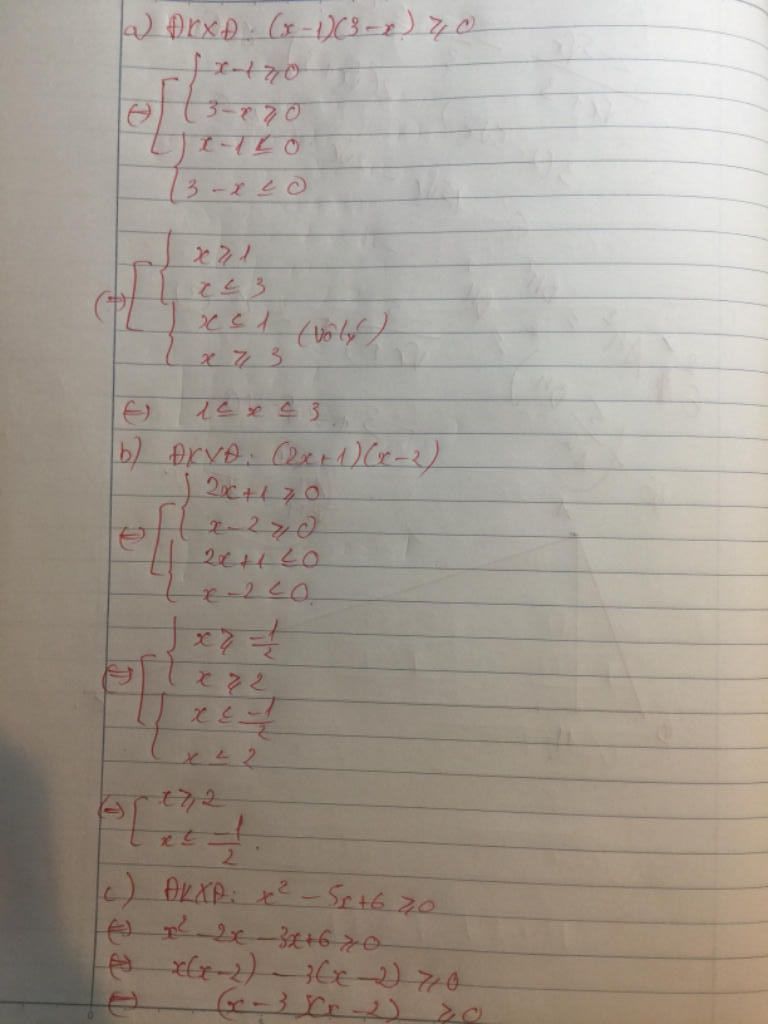 a) ĐKXĐ: (x-1)(3-x) ≥ 0
x-1 ≥ 0
⇔ 3-x ≥ 0
x-1 ≤ 0
3-x ≤ 0
x ≥ 1
x ≤ 3
⇔ x ≤ 1 (Vô lý)
x ≥ 3
⇔ 1 ≤ x ≤ 3
b) ĐKXĐ: (2x+1)(x-2)
2x+1 ≥ 0
⇔ x-2 ≥ 0
2x+1 ≤ 0
x-2 ≤ 0.
x ≥ -1/2
⇔ x ≥ 2
x ≤ -1/2
x ≤ 2
⇔ x ≥ 2
x ≤ -1/2.
c) ĐKXĐ: x² - 5x+6 ≥ 0
⇔ x² - 2x - 3x+6 ≥ 0
⇔ x(x-2) - 3(x-2) ≥ 0
⇔ (x-3)(x-2) ≥ 0